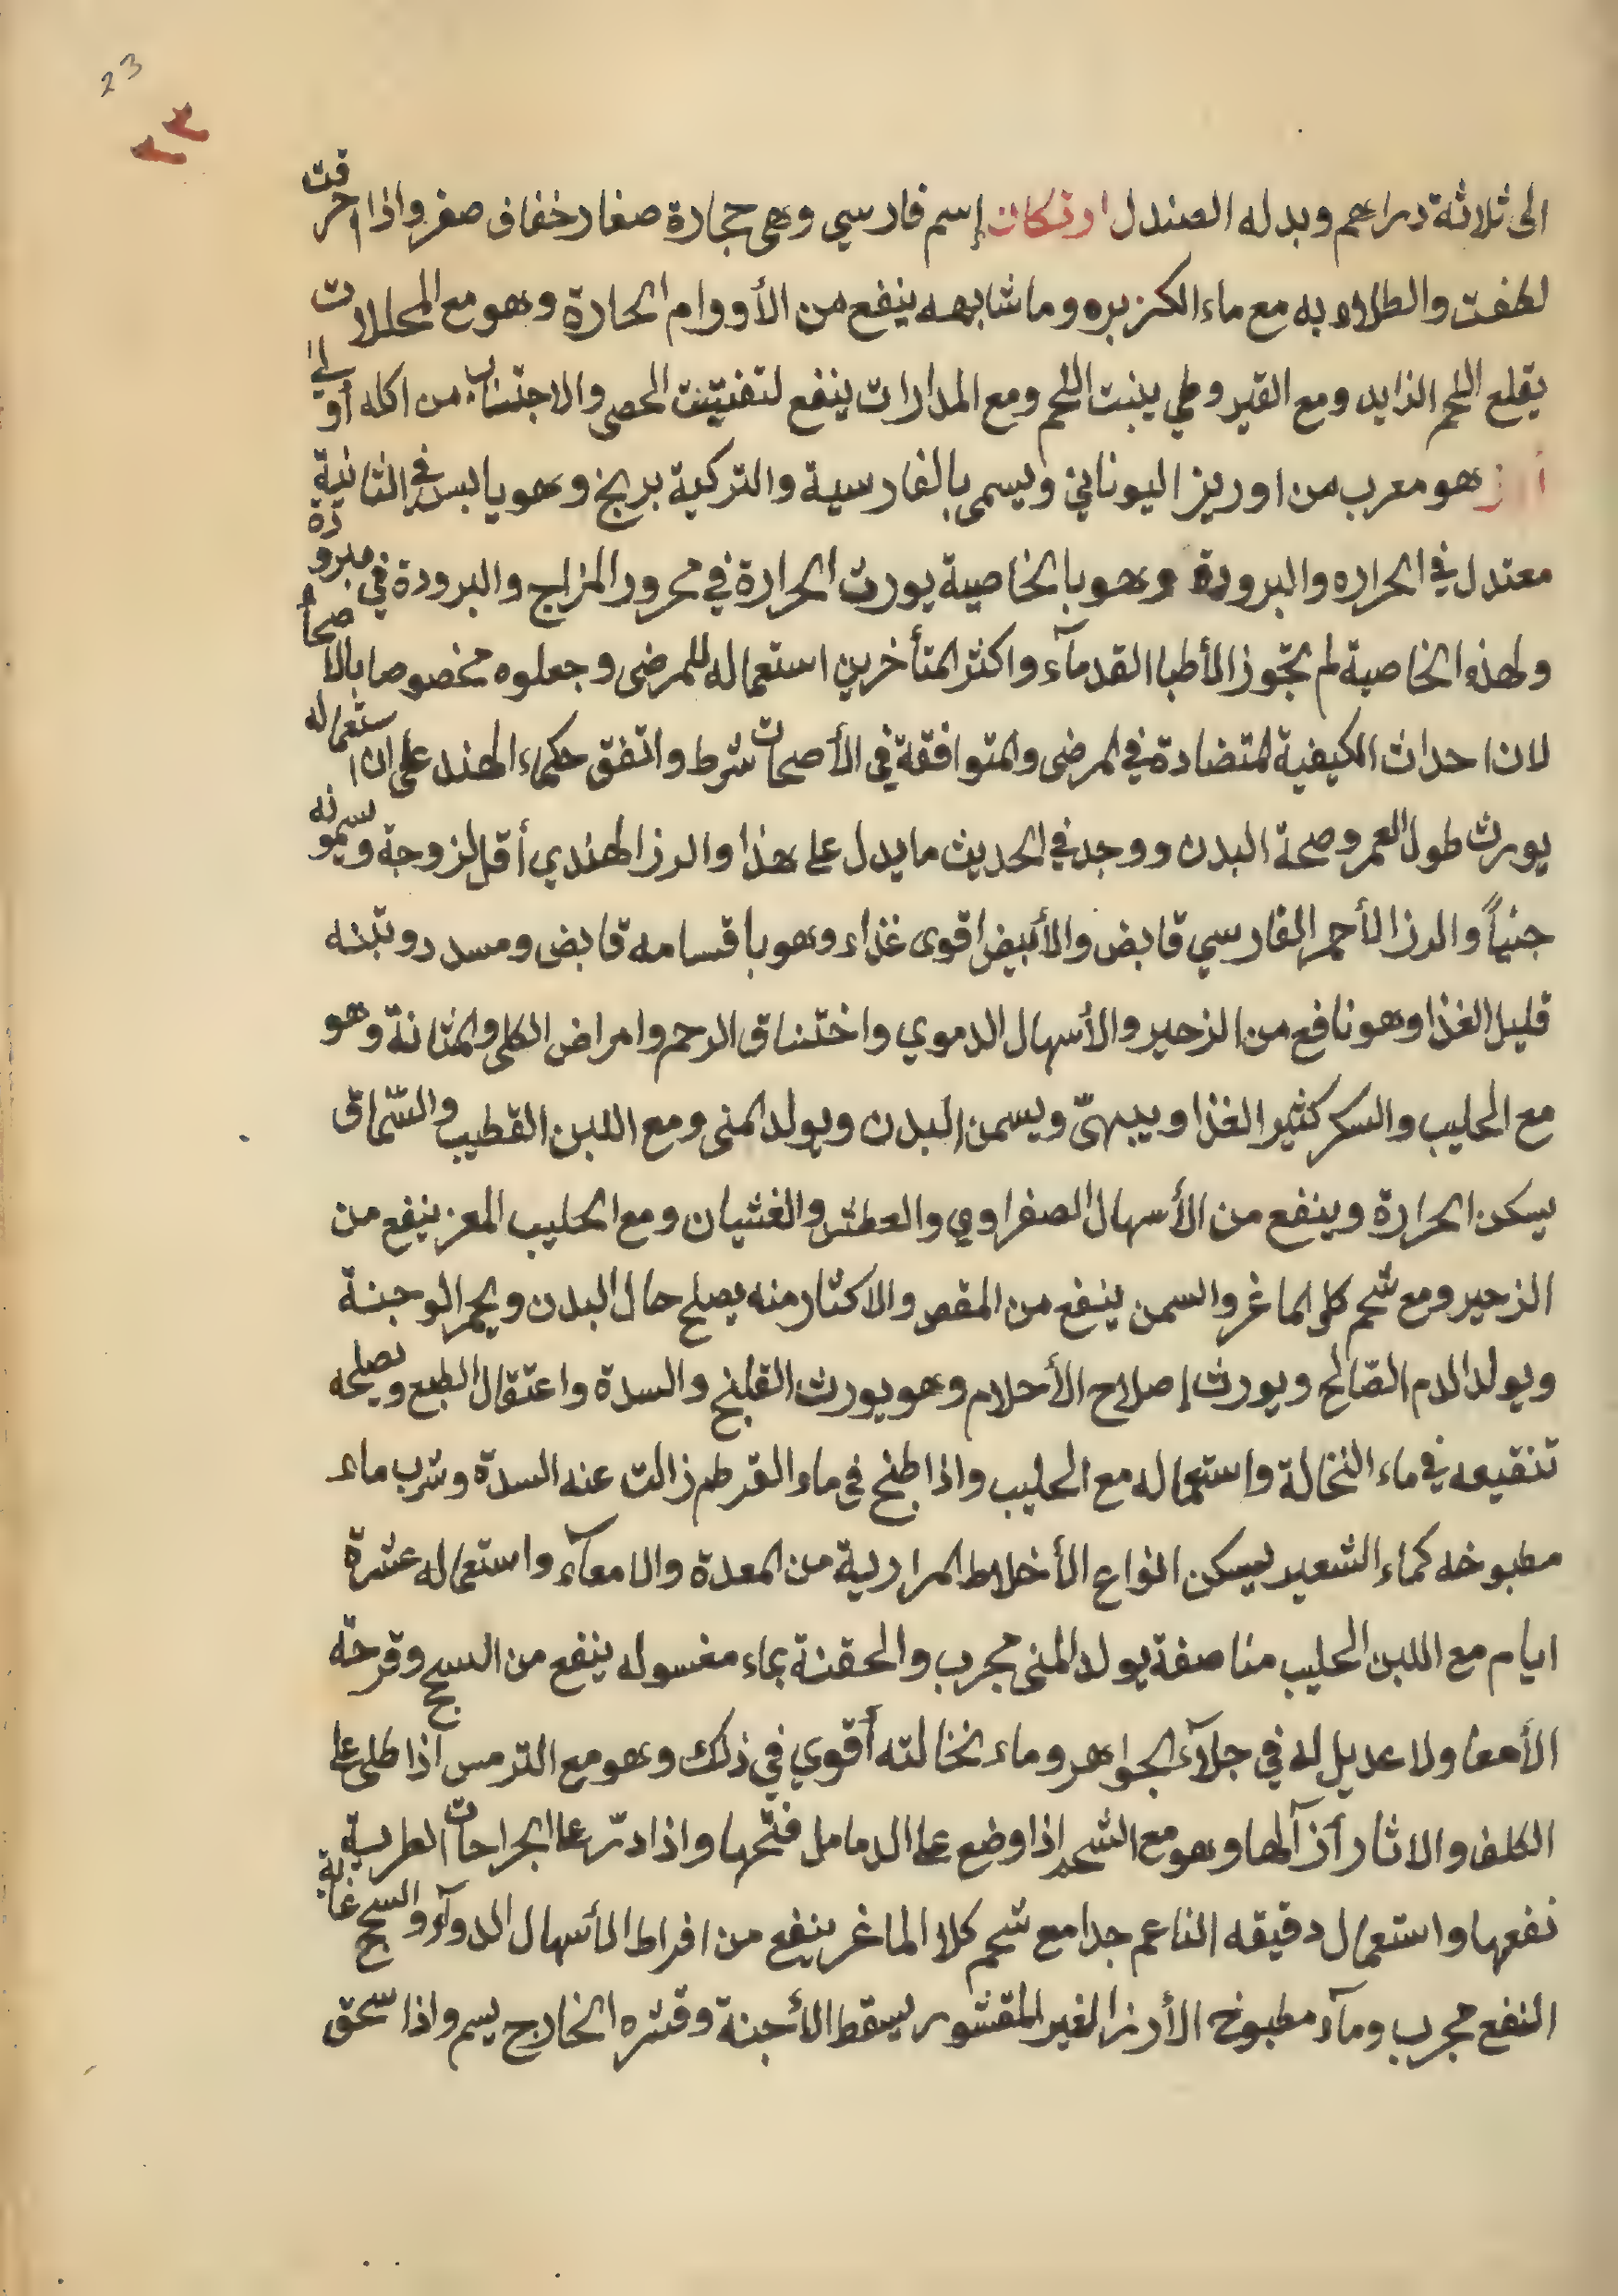 23
٢٣
الى ثلاثة دراهم وبدله الصندل ارتكان إسم فارسي وهى حجارة صغار خفاف صفر واذا احرقت
لطفت والطلاء به مع ماء الكزبره وما شابهه ينفع من الأورام الحارة وهو مع المحللات
يقلع اللحم الزايد ومع القيروطي ينبت اللحم ومع المدارات ينفع لتفتيت الحصى والاجتناب من اكله أولى
أرز هو معرب من اوريز اليوناني ويسمى بالفارسية والتركية برنج وهو يابس في الثانية
معتدل في الحراره والبرودة وهو بالخاصية يورث الحرارة في محرور المزاج والبرودة في مبرودة
ولهذه الخاصية لم تجّوز الأطبا القدمآء واكثر المتأخرين استعماله للمرضى وجعلوه مخصوصا بالأصحاء
لان احداث الكيفية المتضادة في المرضى والمتوافقة في الأصحات شرط واتفق حكماء الهند على ان استعماله
يورث طول العمر وصحة البدن ووجد في الحديث ما يدل على هذا والرز الهندي أقل لزوجة ويسمونه
جنپاً والرز الأحمر الفارسي قابض والأبيض اقوى غذاء وهو باقسامه قابض ومسدد وتبنه
قليل الغذا وهو نافع من الزحير والأسهال الدموي واختناق الرحم وامراض الكلى والمثانة وهو
مع الحليب والسكر كثير الغذا ويبهىّ ويسمن البدن ويولد المنى ومع اللبن القطيب والسّماق
يسكن الحرارة وينفع من الأسهال الصفراوي والعطش والغثيان ومع الحليب المعز ينفع من
الزحير ومع شحم كلى الماغر والسمن ينفع من المقص والاكثار منه يصلح حال البدن ويحمر الوجنة
ويولد الدم الصّالح ويورث إصلاح الأحلام وهو يورث القلنج والسدة واعتقال الطبع ويصلحه
تنقيعه في ماء النخالة واستعماله مع الحليب واذا طبخ في ماء القرطم زالت عنه السدة وشرب ماء
مطبوخه كماء الشعير يسكن انواع الأخلاط المرارية من المعدة والامعآء واستعماله عشرة
ايام مع اللبن الحليب مناصفة يولد المنى مجرب والحقنة بماء مغسوله ينفع من السحج وقرحة
الأمعا ولا عديل له في جلآء الجواهر وماء نخالته أقوي في ذلك وهو مع الترمس اذا طلى على
الكلف والاثار أزآلها وهو مع الشحم اذا وضع على الدمامل فتحها واذا درّ على الجراحات الطرية
نفعها واستعمال دقيقه الناعم جدا مع شحم كلا الماغر ينفع من افراط الأسهال الدوآء والسحج غاية
النفع مجرب ومآء مطبوخ الأرز الغير المقشور يسقط الأجنة وقشره الخارج يسم واذا سحق